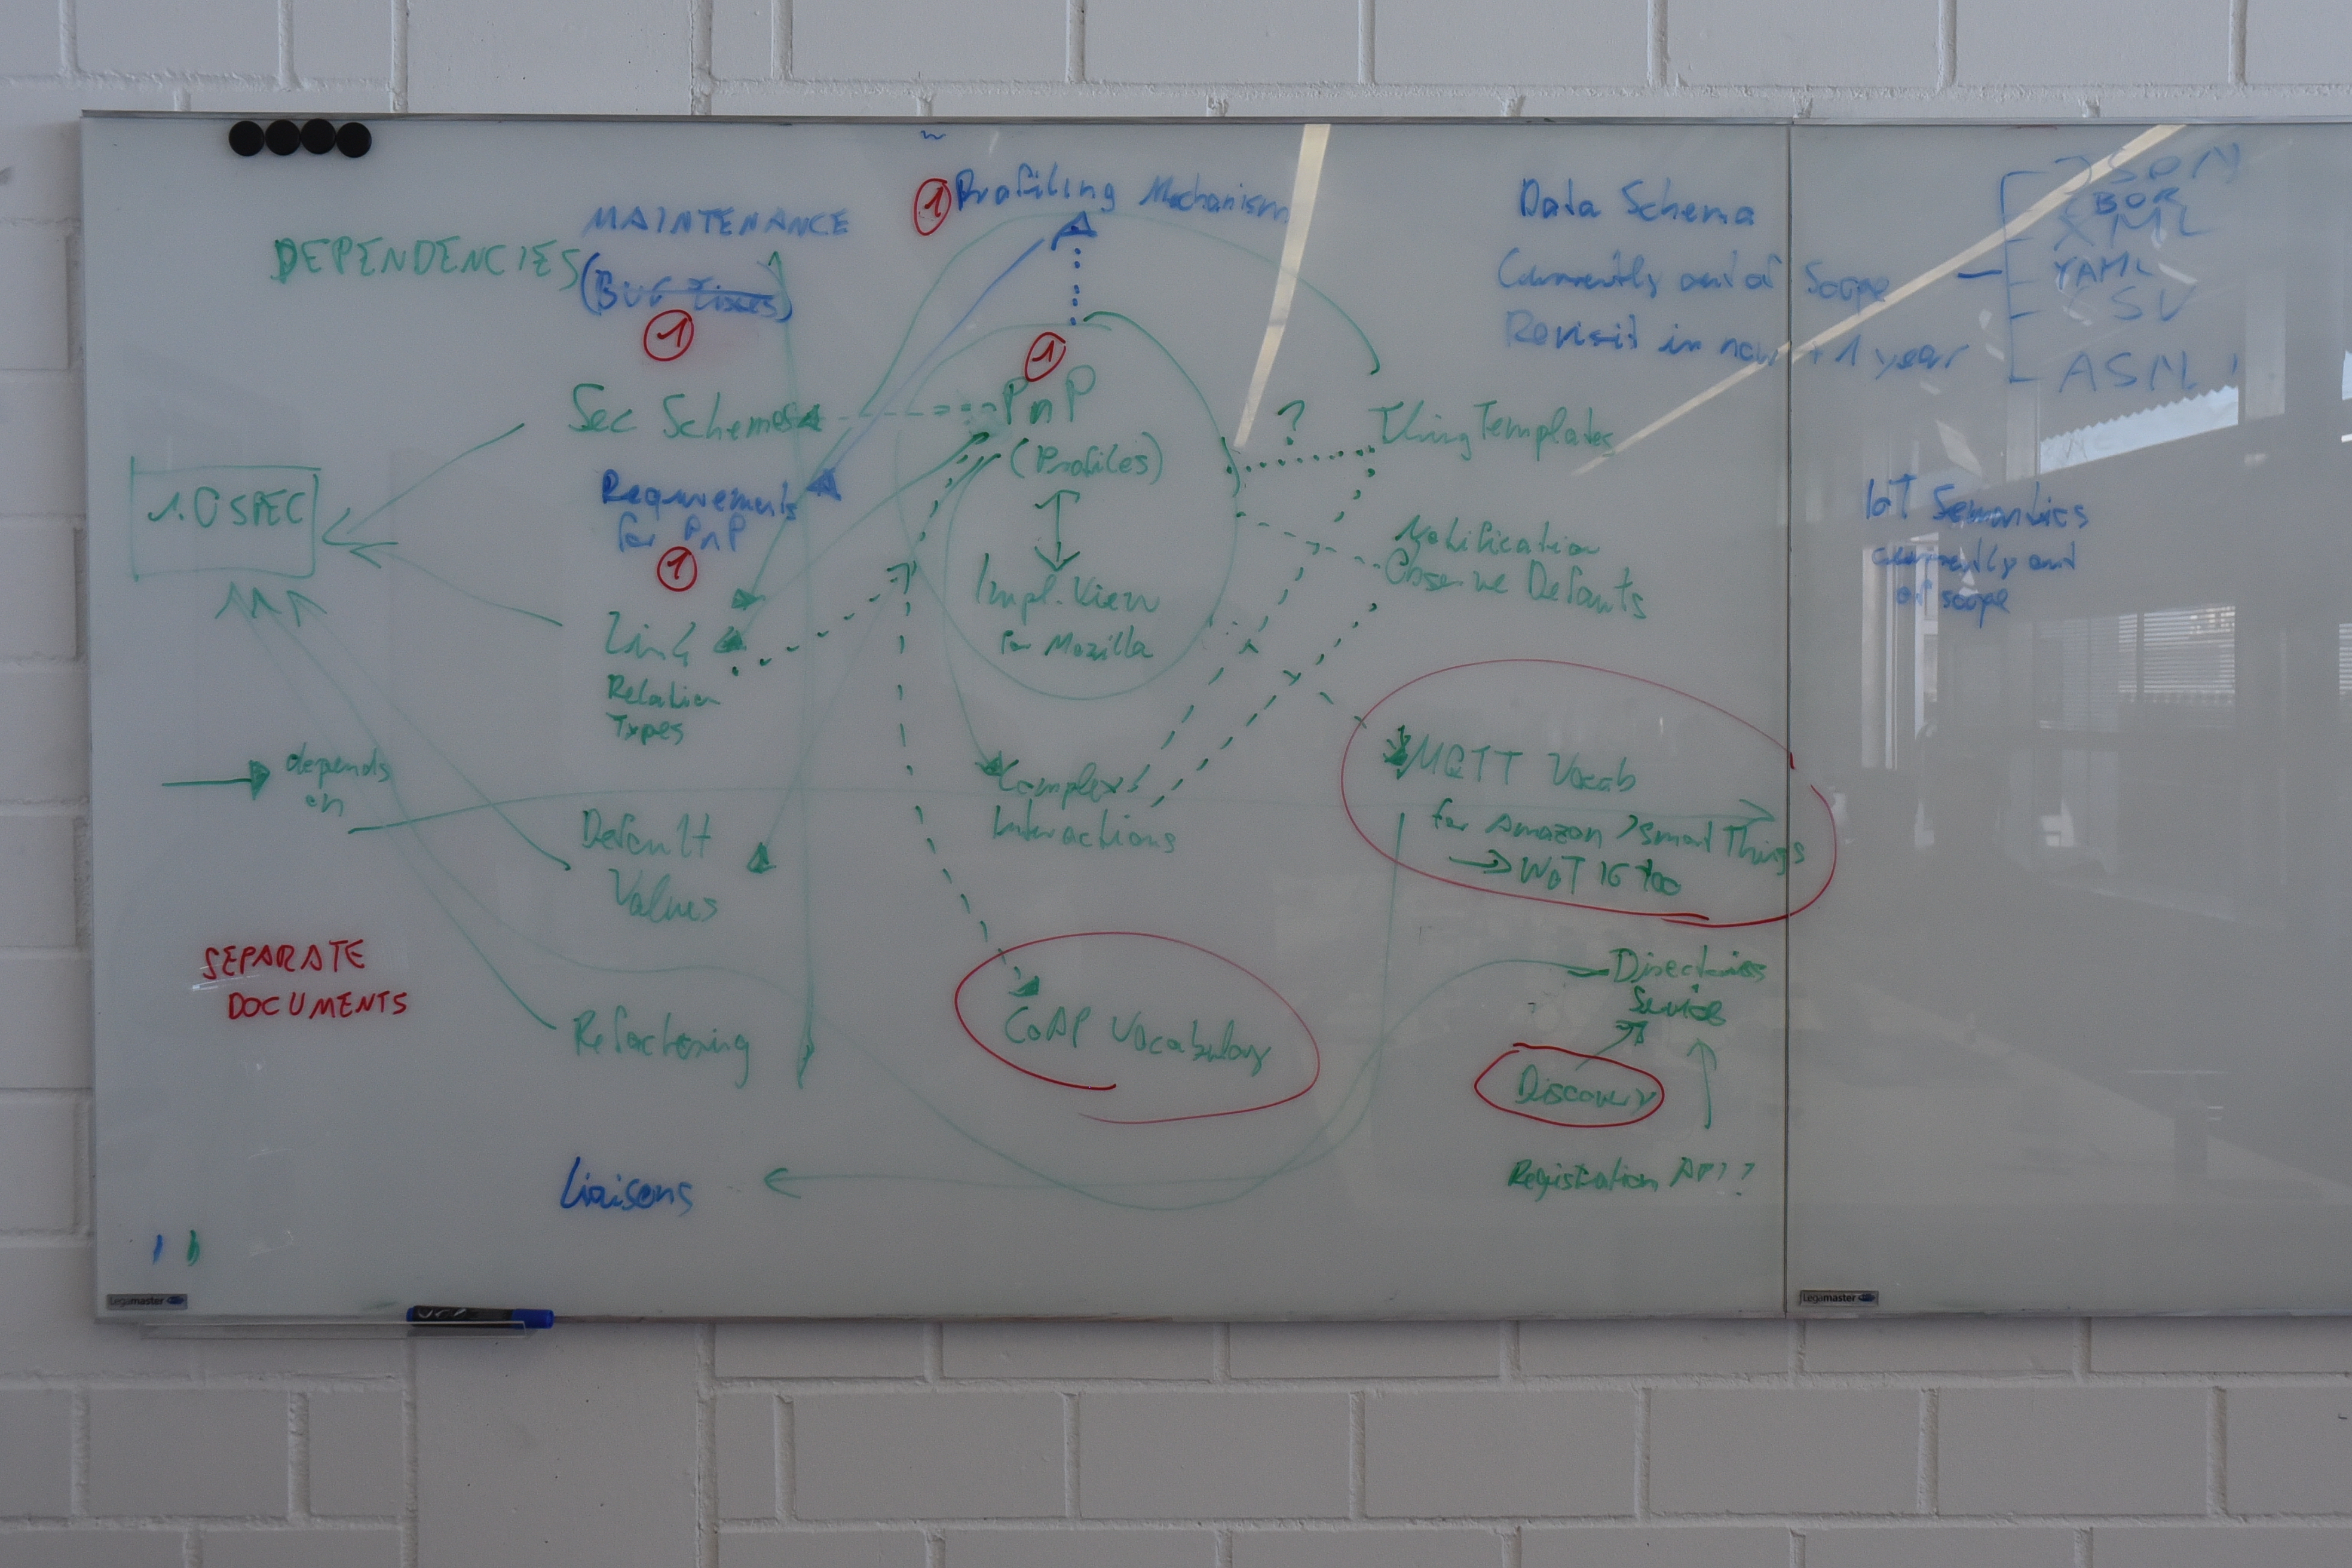 DEPENDENCIES
MAINTENANCE
(Bug Fixes)
1
1 Profiling Mechanism
Data Schema
Currently out of Scope
Revisit in now + 1 year
JSON
CBOR
XML
YAML
CSV
ASN.1
1.0 SPEC
Sec Schemes
Requirements
for PnP
1
Link
Relation
Types
1
PnP
(Profiles)
Impl. View
for Mozilla
?
Thing Templates
Notification
Observe Defaults
IoT Semantics
currently out
of scope
depends
on
Default
Values
Complex
Interactions
MQTT Vocab
for Amazon / Smart Things
→ WoT IG too
SEPARATE
DOCUMENTS
Refactoring
CoAP Vocabulary
Directories
Services
Discovery
Registration API?
Liaisons
Legamaster
Legamaster